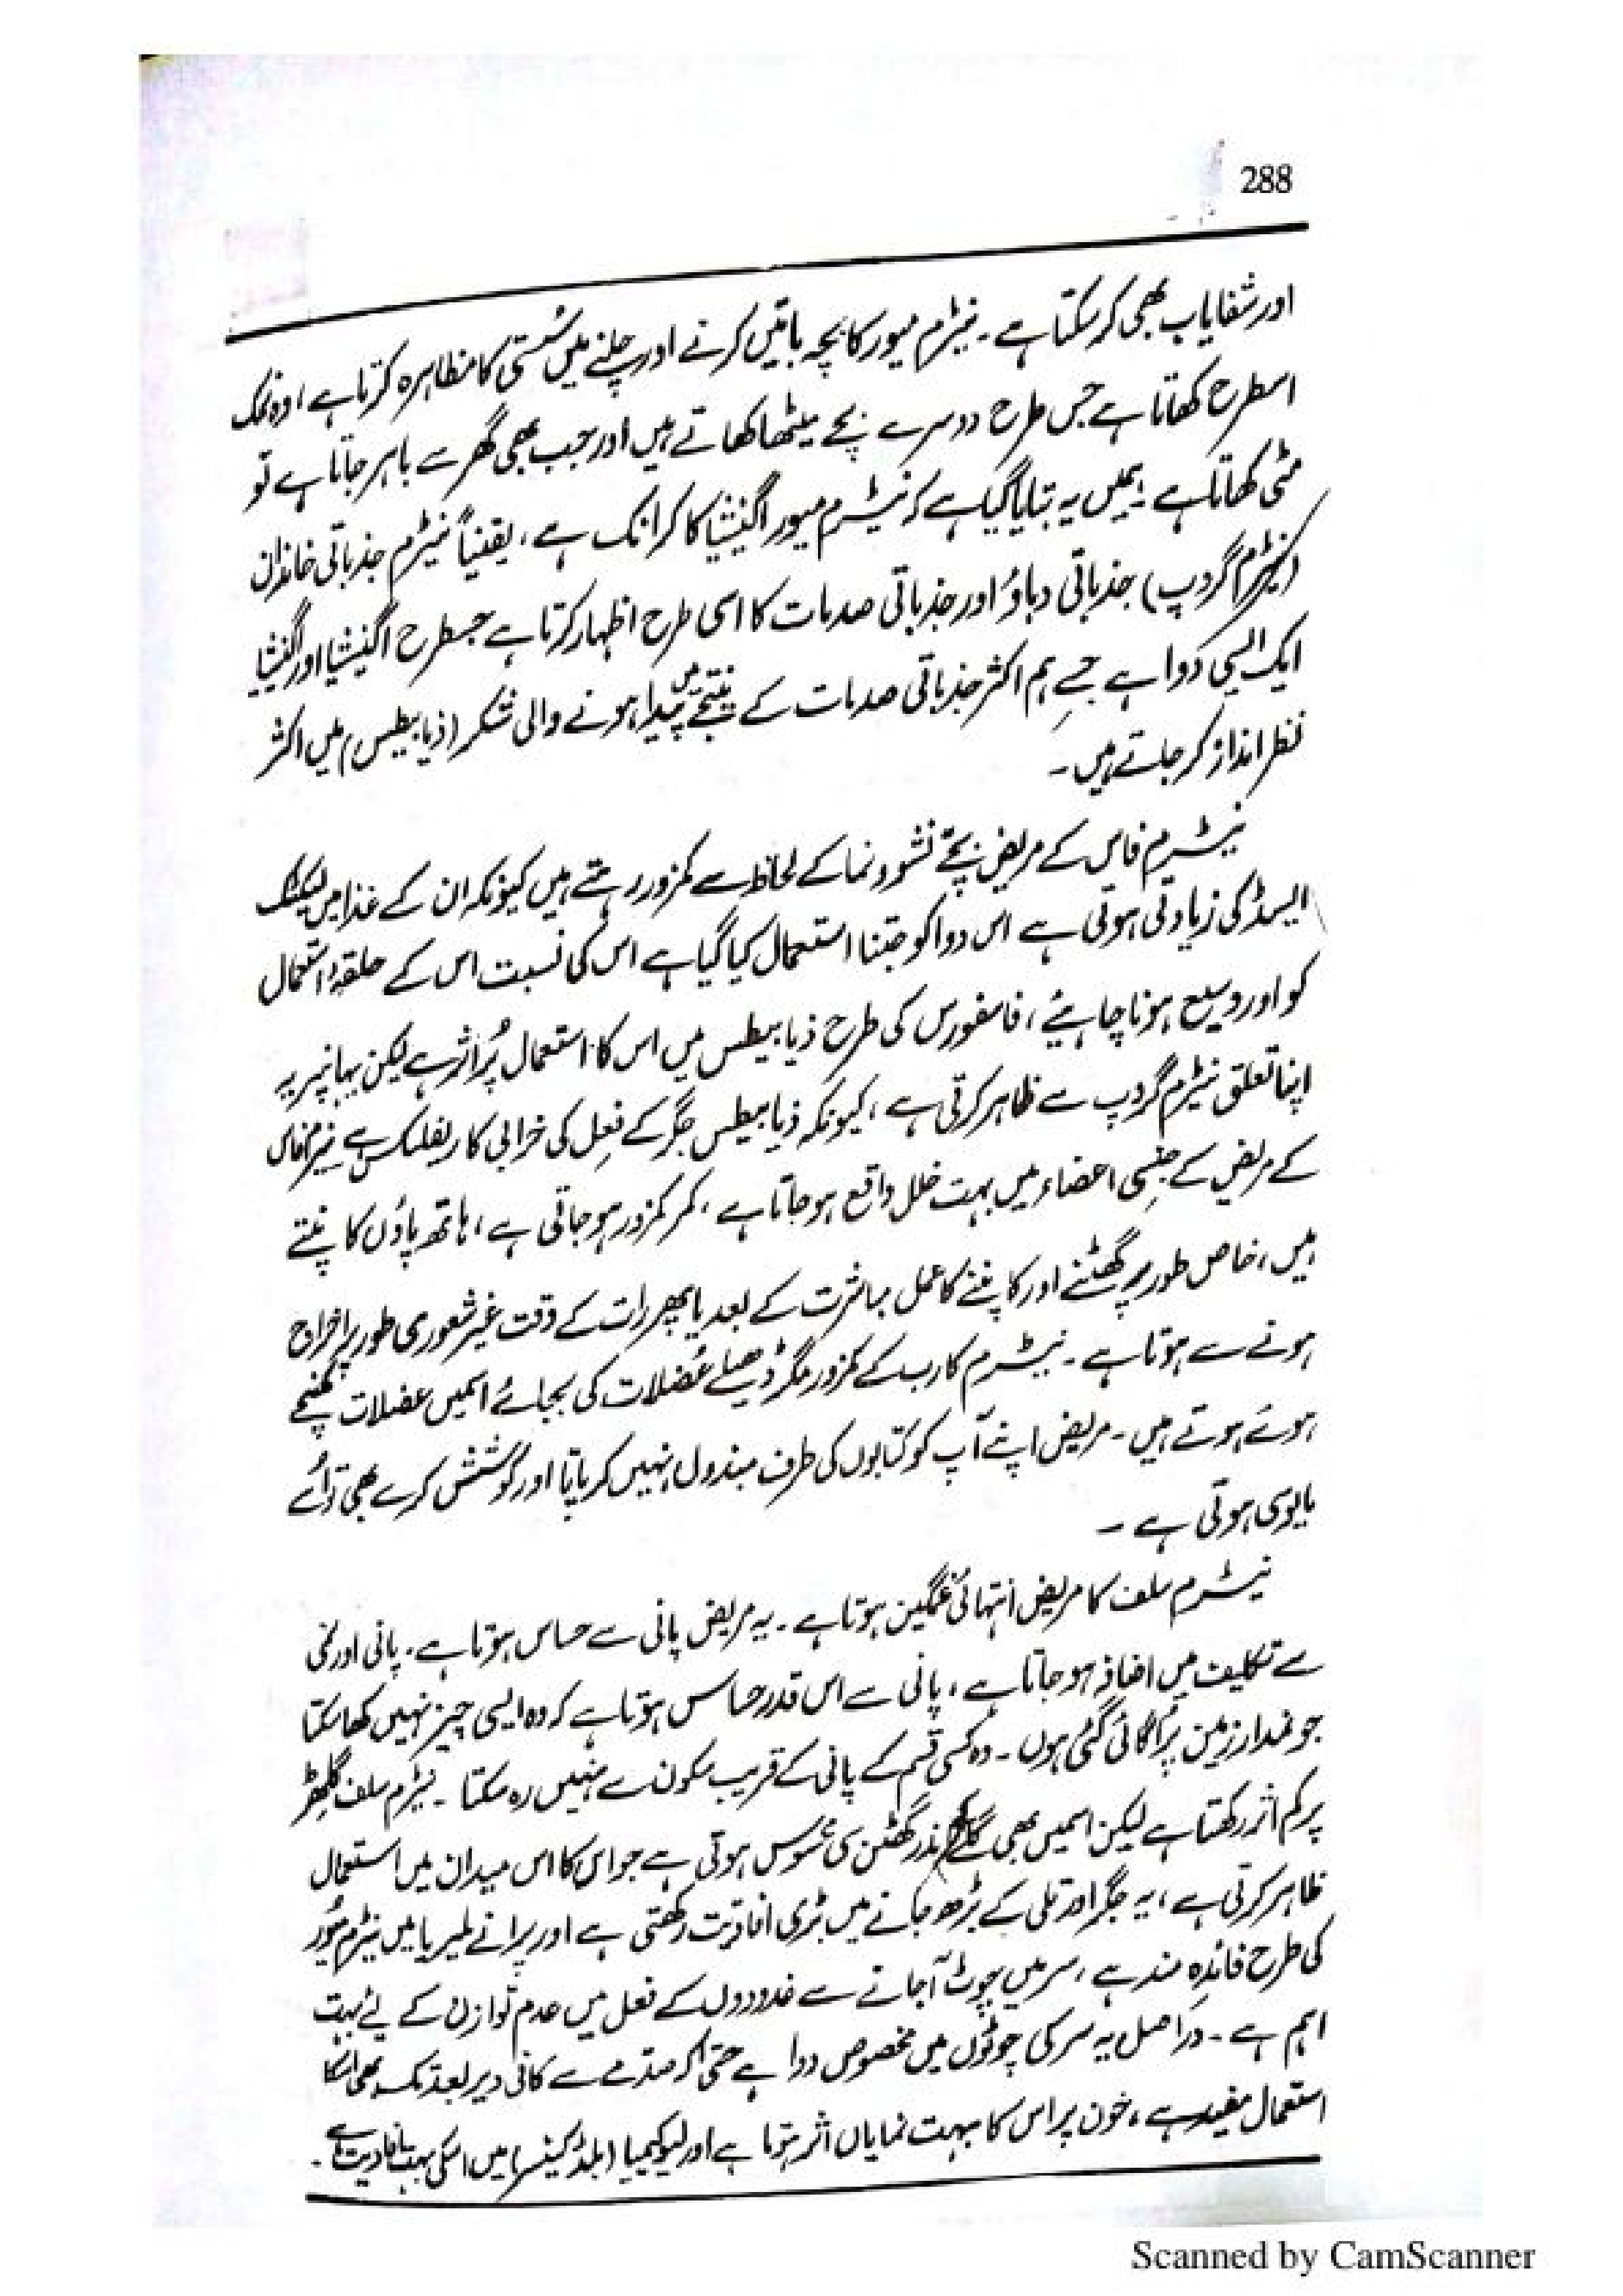 288
اور شفایاب بھی کر سکتا ہے ۔ نیٹرم میور کا بچہ باتیں کرنے اور چلنے میں سُستی کا مظاہرہ کرتا ہے، وہ نمک
اسطرح کھاتا ہے جس طرح دوسرے بچے میٹھا کھاتے ہیں اور جب بھی گھر سے باہر جاتا ہے تو
مٹی کھاتا ہے ۔ ہمیں یہ بتایا گیا ہے کہ نیٹرم میور اگنیشیا کا کرانک ہے، یقیناً نیٹرم جذباتی خاندان
(نیٹرم گروپ) جذباتی دباؤ اور جذباتی صدمات کا اسی طرح اظہار کرتا ہے جسطرح اگنیشیا اور اگنیشیا
ایک ایسی دوا ہے جسے ہم اکثر جذباتی صدمات کے نتیجے میں پیدا ہونے والی شکر (ذیابیطس) میں اکثر
نظر انداز کر جاتے ہیں ۔
نیٹرم فاس کے مریض بچے نشوونما کے لحاظ سے کمزور رہتے ہیں کیونکہ ان کے غذا میں لیکٹک
ایسڈ کی زیادتی ہوتی ہے اس دوا کو جتنا استعمال کیا گیا ہے اس کی نسبت اس کے حلقہء استعمال
کو اور وسیع ہونا چاہئیے، فاسفورس کی طرح ذیابیطس میں اس کا استعمال پُراثر ہے لیکن یہانپر یہ
اپنا تعلق نیٹرم گروپ سے ظاہر کرتی ہے، کیونکہ ذیابیطس جگر کے فِعل کی خرابی کا ریفلیکس ہے نیٹرم فاس
کے مریض کے جنسی اعضاء میں بہت خلل واقع ہو جاتا ہے، کمر کمزور ہو جاتی ہے، ہاتھ پاؤں کانپتے
ہیں، خاص طور پر گھٹنے اور کانپنے کا عمل مباشرت کے بعد یا پھر رات کے وقت غیر شعوری طور پر اخراج
ہونے سے ہوتا ہے ۔ نیٹرم کارب کے کمزور مگر ڈھیلے عُضلات کی بجائے اسمیں عضلات کھنچے
ہوئے ہوتے ہیں ۔ مریض اپنے آپ کو کتابوں کی طرف مبذول نہیں کر پاتا اور کوشش کرے بھی تو اُسے
مایوسی ہوتی ہے ۔
نیٹرم سلف کا مریض انتہائی غمگین ہوتا ہے ۔ یہ مریض پانی سے حساس ہوتا ہے ۔ پانی اور نمی
سے تکلیف میں اضافہ ہو جاتا ہے، پانی سے اس قدر حساس ہوتا ہے کہ وہ ایسی چیز نہیں کھا سکتا
جو نمدار زمین پر اُگائی گئی ہوں ۔ وہ کسی قسم کے پانی کے قریب سکون سے نہیں رہ سکتا ۔ نیٹرم سلف گلہڑ
پر کم اثر رکھتا ہے لیکن اسمیں بھی گلے کے اندر گھٹن سی محسوس ہوتی ہے جو اس کا اس میدان میں استعمال
ظاہر کرتی ہے، یہ جگر اور تلی کے بڑھ جانے میں بڑی افادیت رکھتی ہے اور پرانے ملیریا میں نیٹرم میُور
کی طرح فائدہ مند ہے، سر میں چوٹ آ جانے سے غدودوں کے فعل میں عدم توازن کے لئے بہت
اہم ہے ۔ دراصل یہ سر کی چوٹوں میں مخصوص دوا ہے حتیٰ کہ صدمے سے کافی دیر بعد تک بھی اسکا
استعمال مفید ہے، خون پر اس کا بہت نمایاں اثر ہوتا ہے اور لیوکیمیا (بلڈ کینسر) میں اسکی بہت افادیت ہے ۔
Scanned by CamScanner